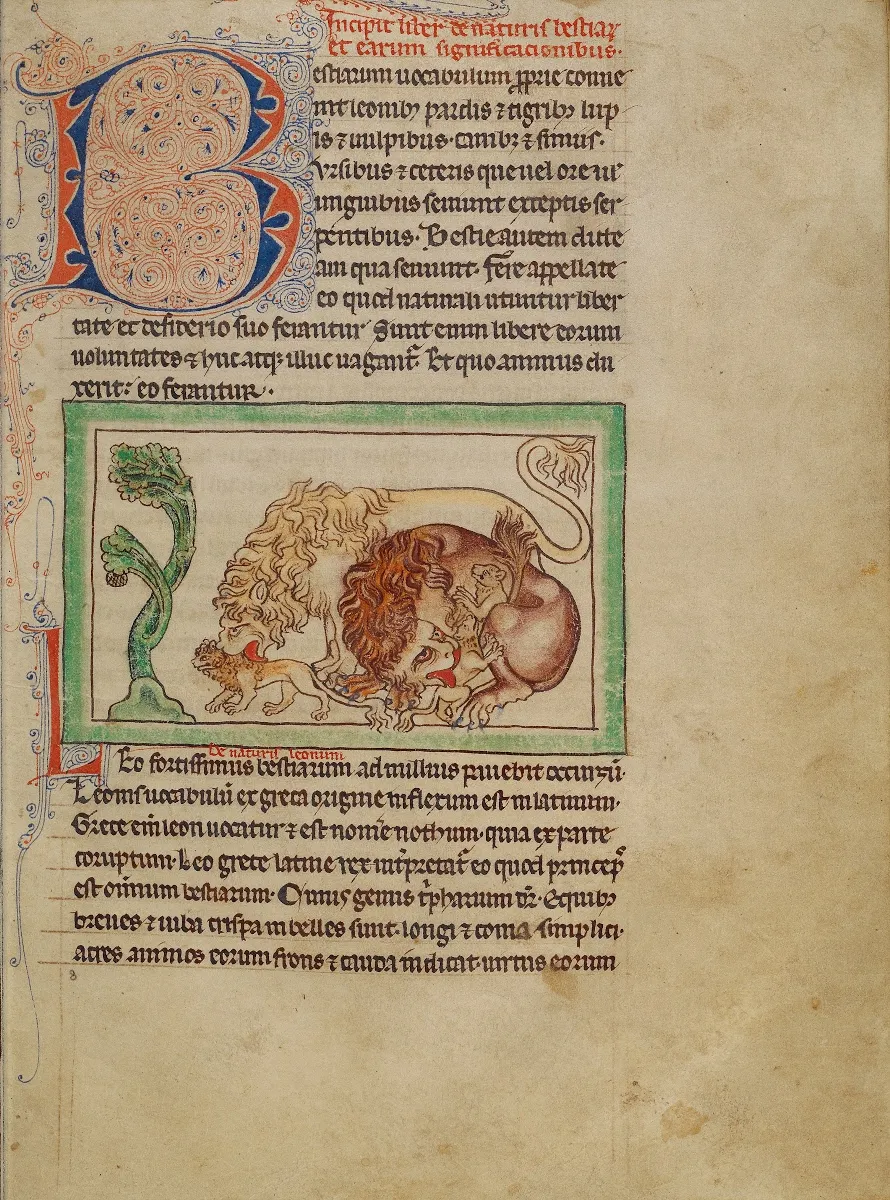 Incipit liber de naturis bestiaꝝ
et earum significacionibus.
Bestiarum uocabulum ꝓprie conue
nit leonibꝫ pardis ⁊ tigribꝫ lup
is ⁊ uulpibus. canibꝫ ⁊ simiis.
Vrsibus ⁊ ceteris que uel ore ue
unguibus seuiunt exceptis ser
pentibus. Bestie autem dicte
am qua seuiunt. Fere appellate
eo quod naturali utuntur liber
tate et desiderio suo ferantur Sunt enim libere eorum
uoluntates ⁊ huc atqꝫ illuc uagant᷑. Et quo animus du
xerit: eo ferantur.
De naturis leonum
Leo fortissimus bestiarum ad nullius pauebit occursū.
Leonis uocabulū ex greca origine inflexum est in latinum.
Grece em̄ leon uocatur ⁊ est nom̄e nothum. quia ex parte
coruptum. Leo grece latine rex int̓pretat᷑ eo quod princeps
est om̄ium bestiarum. Cuius genus t̓pharium dr̄. Equibꝫ
breues ⁊ iuba crispa inbelles sunt. longi ⁊ coma simplici.
acres animos eorum frons ⁊ cauda indicat. uirtus eorum